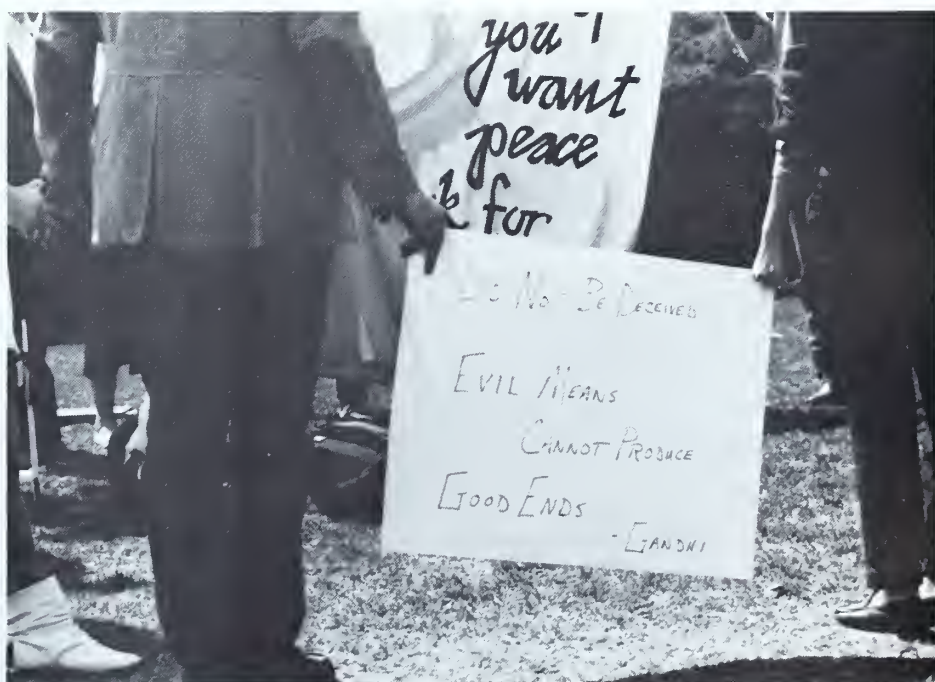 you
want
peace
for
Do Not Be Deceived
Evil Means
Cannot Produce
Good Ends
- Gandhi